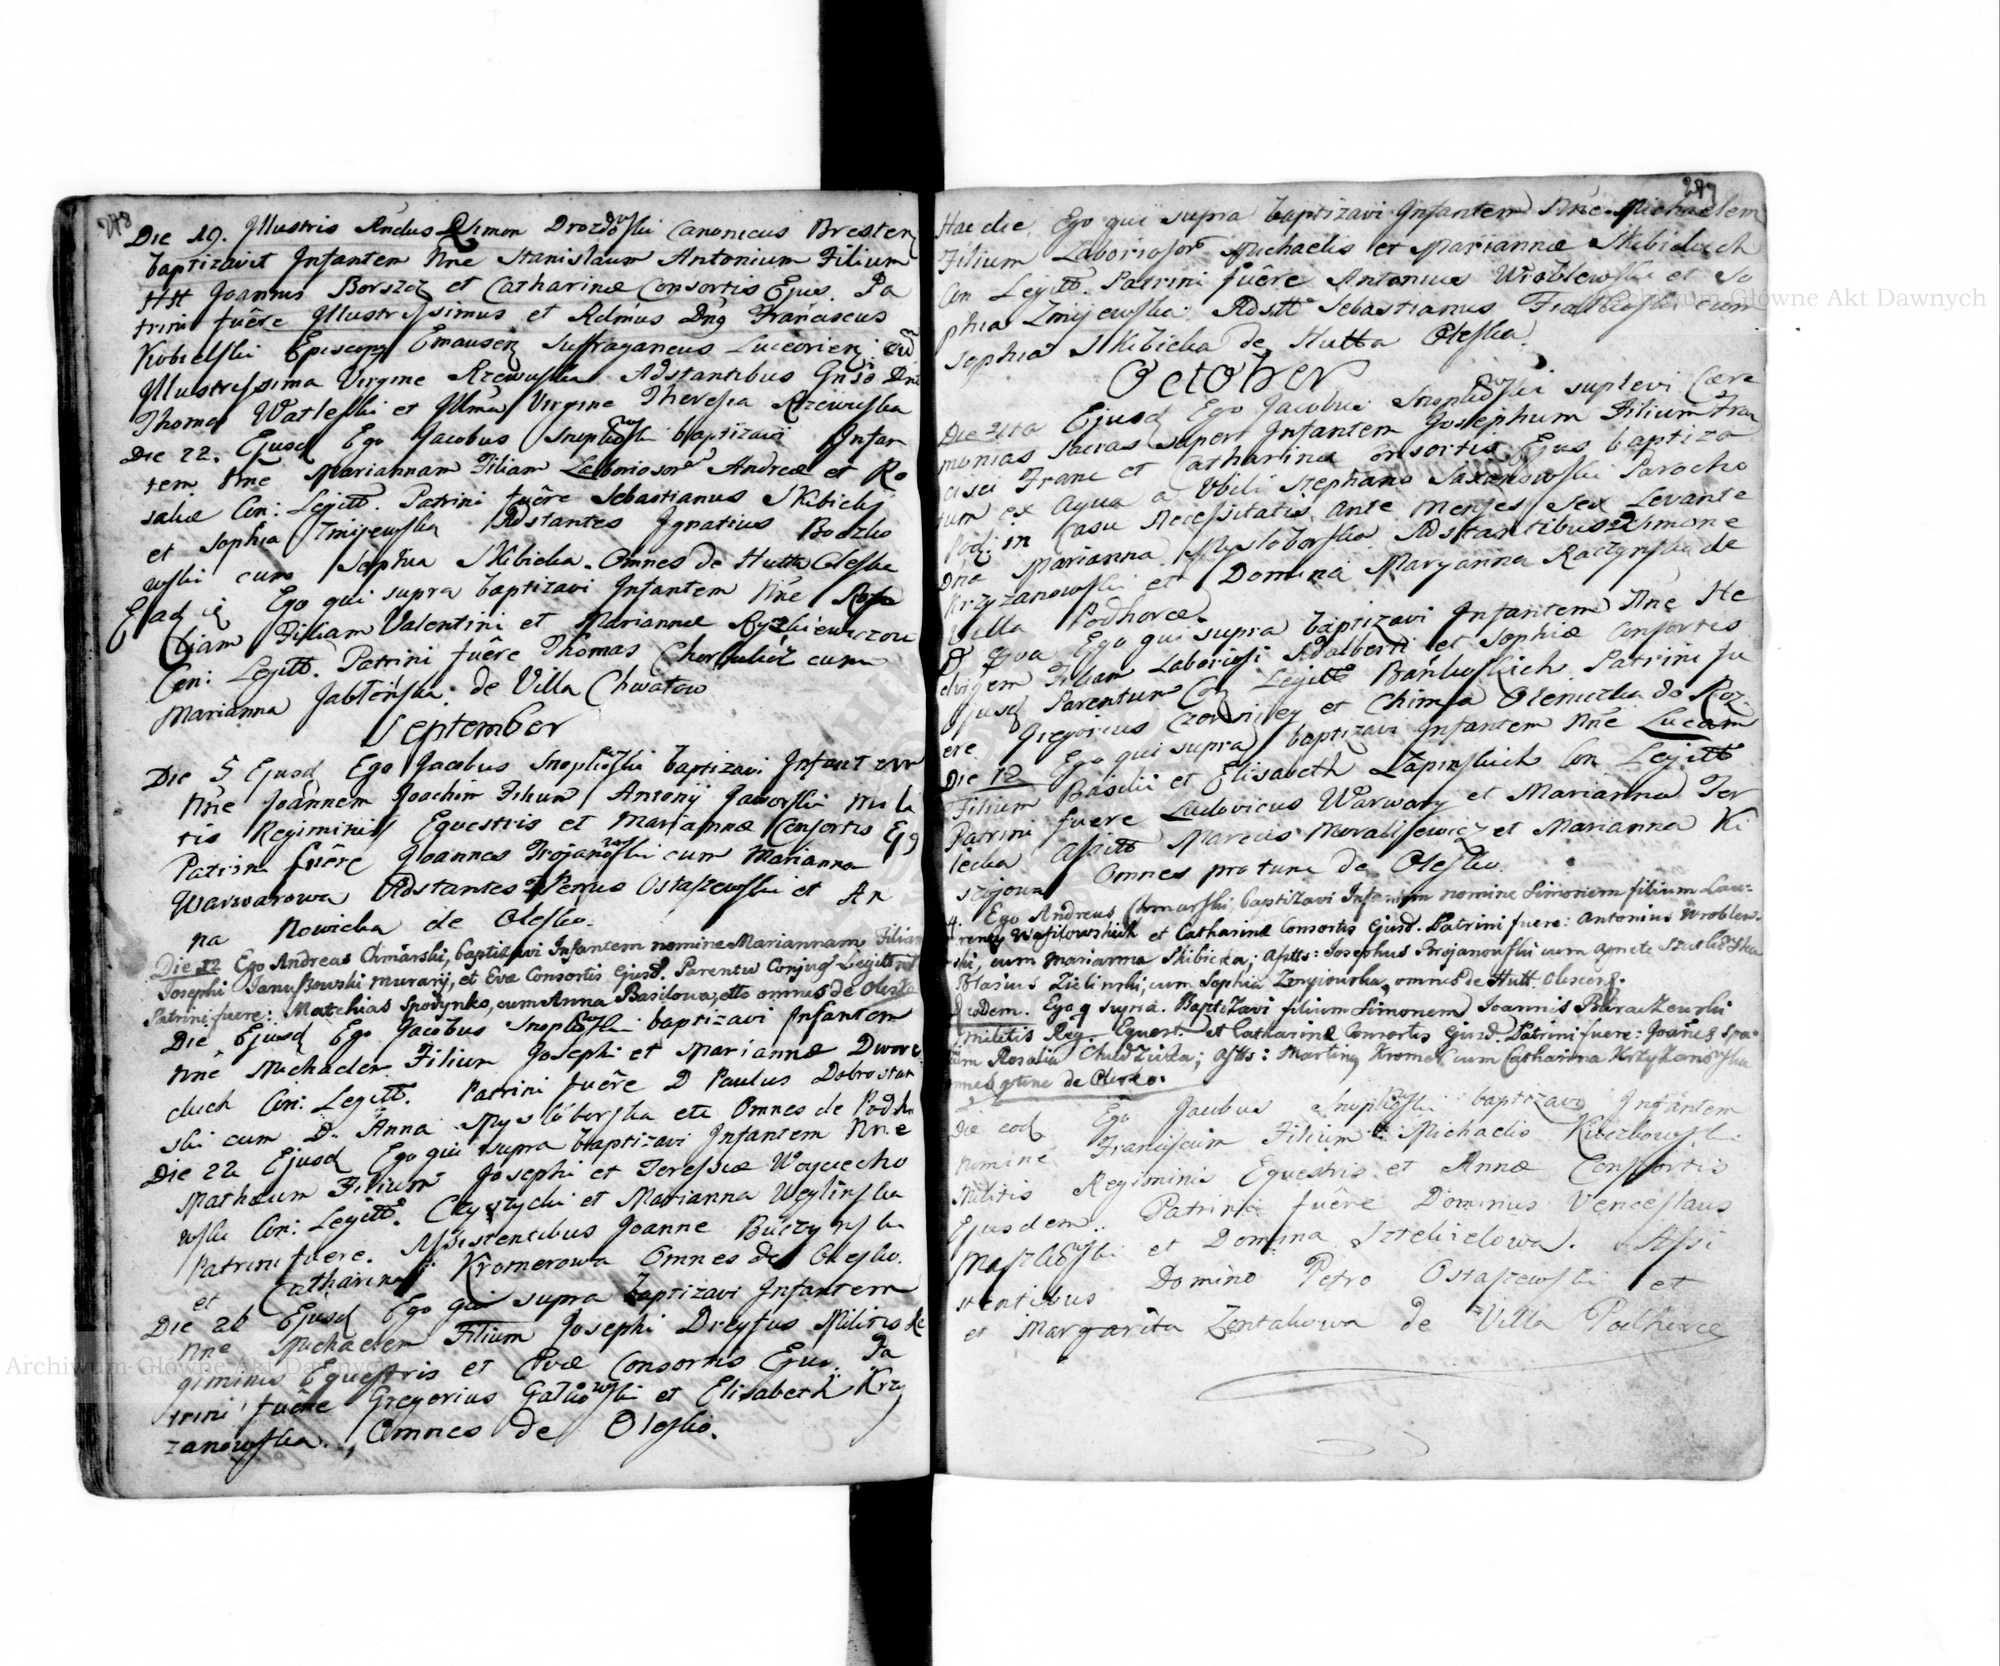 248
Die 19. Illustris Rndus D Simon Drozdowski Canonicus Bresten
baptizavit Infantem Nne Stanislaum Antonium Filium
Joannis Borszcz et Catharinæ Consortis Ejus. Pa
trini fuêre Illustrissimus et Rdmus Dnġ Franciscus
Kobielski Episcopġ Emausenġ Suffraganeus Luceorienġ cum
Illustrissima Virgine Rzewuska. Adstantibus Gnso Dno
Thoma Watleski et Illma Virgine Theresia Rzewuska
Die 22. Ejusd Ego Jacobus Snopkowski baptizavi Infan
tem Nne Mariannam Filiam Laboriosor Andreæ et Ro
saliæ Con: Legitt. Patrini fuêre Sebastianus Skibicki
et Sophia Zmijewska Adstantes Ignatius Bodzko
wski cum Sophia Skibicka. Omnes de Hutta Oleska
Eadem die Ego qui supra baptizavi Infantem Nne Rosa
liam Filiam Valentini et Mariannæ Ryzkiewiczow
Con: Legitt. Patrini fuêre Thomas cum
Marianna Jabłońska. de Villa Chwatow
September
Die 5 Ejusd Ego Jacobus Snopkowski baptizavi Infantem
Nne Joannem Joachim Filium Antonij Jaworski Mili
tis Regiminis Equestris et Mariannæ Consortis Ejġ
Patrini fuêre Joannes Trojanowski cum Marianna
Warwarowa Adstantes Petrus Ostaszewski et An
na Nowicka de Olesko.
Die 12 Ego Andreas Chmarski, baptizavi Infantem nomine Mariannam Filiam
Josephi Januszowski murarij, et Evæ Consortis Ejusd. Parentū Conjug Legitt
Patrini fuere: Matthias Spodynko, cum Anna Basilowa, omnes de Olesko
Die Ejusd Ego Jacobus Snopkowski baptizavi Infantem
Nne Michaelem Filium Josephi et Mariannæ Dwore
ckich Con: Legitt. Patrini fuêre D Paulus Dobrostan
ski cum D. Anna Mysłoborska etc Omnes de Podh
Die 22 Ejusd Ego qui supra baptizavi Infantem Nne
Mathæum Filium Josephi et Teressiæ Woyciecho
wski Con: Legitt. Czyszycki et Marianna Weglinska
Patrini fuere. Assistentibus Joanne Buczynski
et Catharina Kromerowa Omnes de Olesko.
Die 26 Ejusd Ego qui supra baptizavi Infantem
Nne Michaelem Filium Josephi Dreyfus Militis Re
giminis Equestris et Evæ Consortis Ejus. Pa
trini fuêre Gregorius Galkowski et Elisabeth Krzy
zanowska. Omnes de Olesko.
249
Hac die Ego qui supra baptizavi Infantem Nne Michaelem
Filium Laboriosor Michaelis et Mariannæ Skibickich
Con Legitt. Patrini fuêre Antonius Wroblewski et So
phia Zmijewska. Adstt Sebastianus cum
Sophia Skibicka de Hutta Oleska.
October
Die 2da Ejusd Ego Jacobus Snopkowski suplevi Cære
monias Sacras super Infantem Josephum Filium Fran
cisci Franc et Catharinæ Consortis Ejus baptiza
tum ex Aqua a Stephano Saxonowski Parocho
Podh in Casu Necessitatis ante Menses Sex Levante
Dna Marianna Mysloborska. Adstantibus D Simone
Krzyzanowski et Domina Maryanna Raczynska de
Villa Podhorce.
Ego qui supra baptizavi Infantem Nne He
dvigem Filiam Laboriosi Adalberti et Sophiæ Consortis
Ejusd Parentum Legitt Bańkowskich. Patrini fu
ere Gregorius et Chimia Olenicka do Roz.
Die 12 Ego qui supra baptizavi Infantem Nne Lucam
Filium Basilii et Elisabeth Łapinskich Con Legitt
Patrini fuere Ludovicus Warwary et Marianna Ter
lecka Assitt Marcus Moralisewicz et Marianna Ki
szyowa Omnes pro tunc de Olesko.
Ego Andreas Chmarski, baptizavi Infantem nomine Simonem filium Lau-
renty Wasilowskich et Catharinæ Consortis Ejusd. Patrini fuere: Antonius Wroblew-
ski, cum Marianna Skibicka; Astts: Josephus Projanowski cum Agnete
Blasius Zielinski, cum Sophia omnes de Hutt. Olescen.
Eodem. Ego q supra. Baptizavi filium Simonem Joannis Baraczewski
militis Reg. Equest et Catharinæ Consortis Ejusd. Patrini fuere: Joannes Spa-
cum Rosalia Chudzicka; Astts: Martinġ Kromer cum Catharina Krzyzanowska
omnes ptunc de Olesko.
Die eod Ego Jacobus Snopkowski baptizavi Infantem
nomine Franciscum Filium Michaelis Kiczkowski
Militis Regiminis Equestris et Annæ Consortis
Ejusdem. Patrini fuêre Dominus Venceslaus
Maszkowski et Domina Sztekielowa. Assi
stentibus Domino Petro Ostaszewski et
et Margarita Zentakowa de Villa Podhorce
Archiwum Główne Akt Dawnych
Archiwum Główne Akt Dawnych